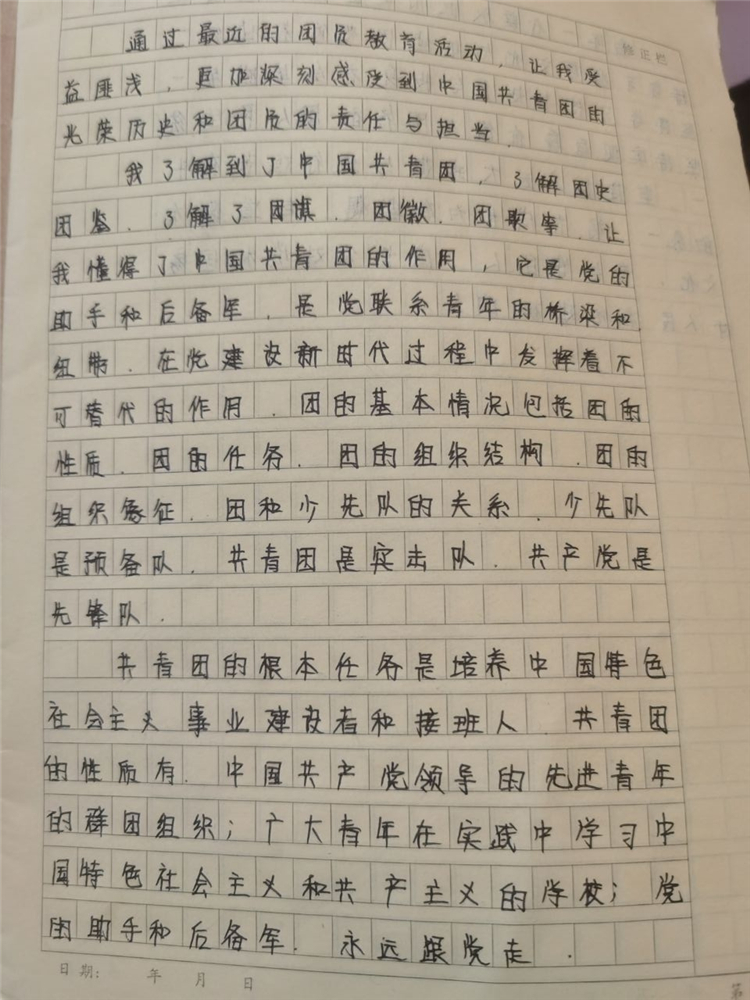 修正栏
通过最近的团员教育活动，让我受
益匪浅，更加深刻感受到中国共青团的
光荣历史和团员的责任与担当.
我了解到了中国共青团，了解团史
团鉴，了解了团旗、团徽、团歌等，让
我懂得了中国共青团的作用，它是党的
助手和后备军，是党联系青年的桥梁和
纽带，在党建设新时代过程中发挥着不
可替代的作用，团的基本情况包括团的
性质、团的任务、团的组织结构、团的
组织象征、团和少先队的关系，少先队
是预备队，共青团是突击队，共产党是
先锋队.
共青团的根本任务是培养中国特色
社会主义事业建设者和接班人 共青团
的性质有，中国共产党领导的先进青年
的群团组织；广大青年在实践中学习中
国特色社会主义和共产主义的学校；党
的助手和后备军，永远跟党走.
日期: 年 月 日
第